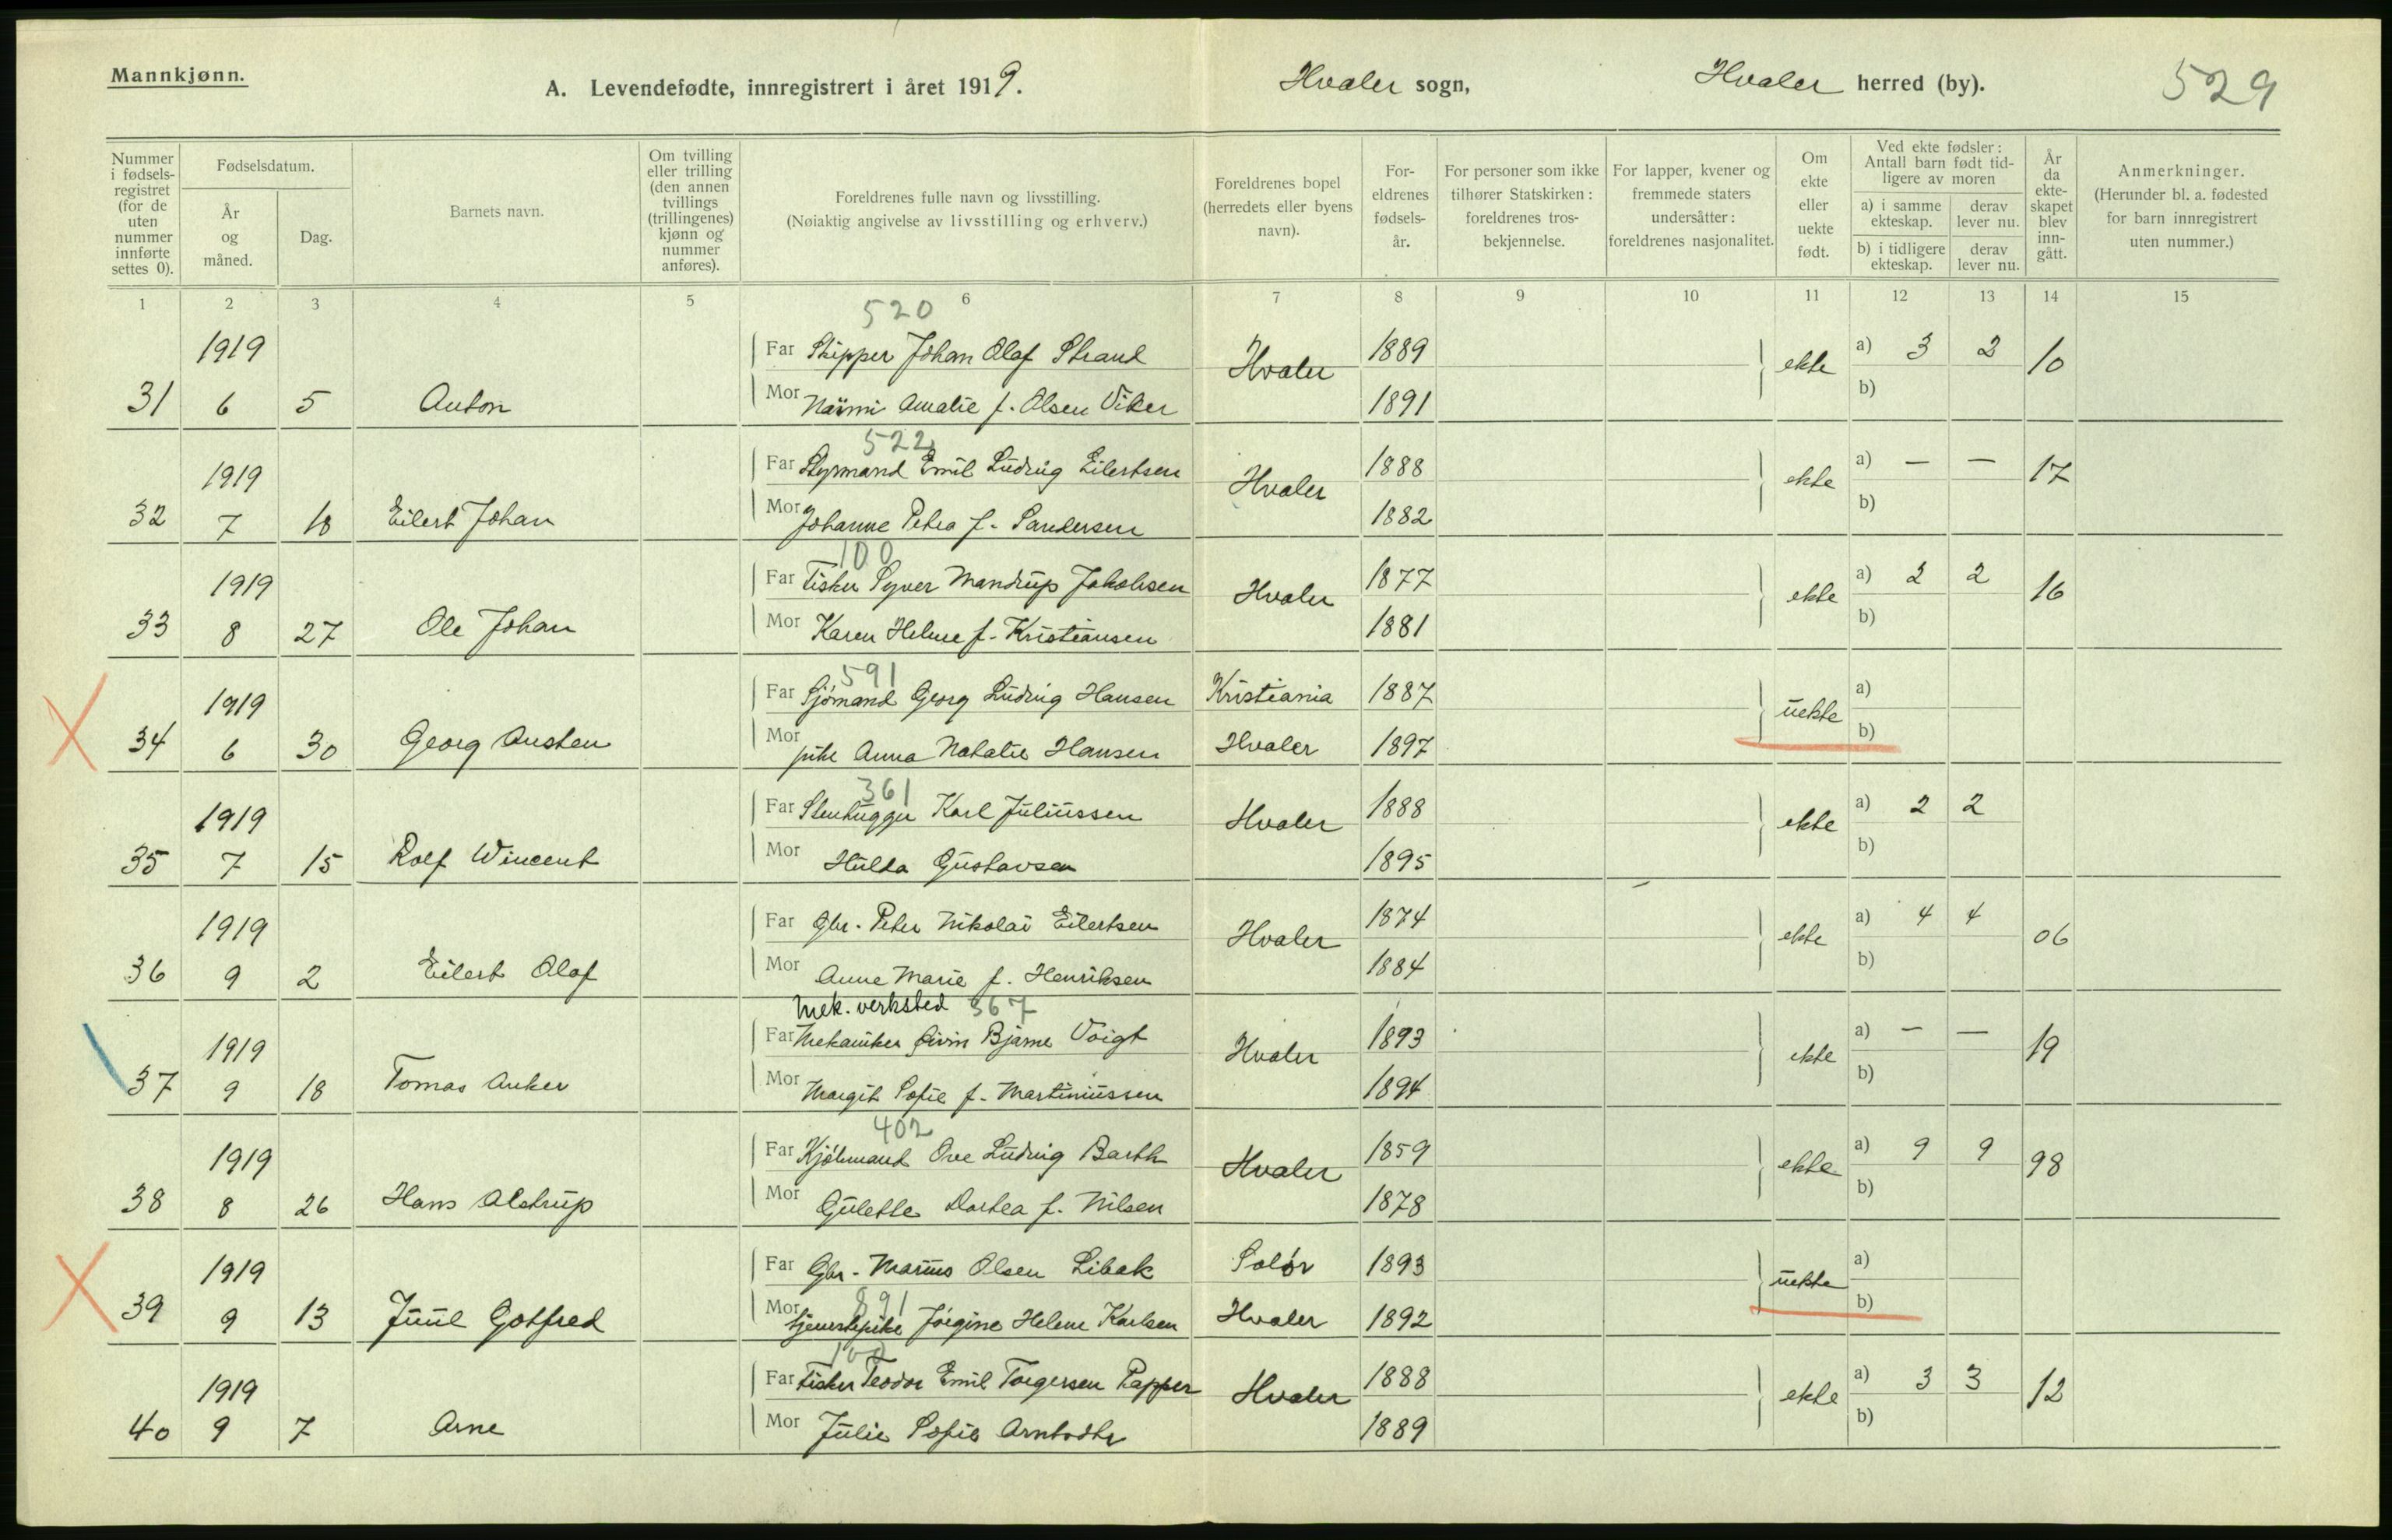 Mannkjønn.
A. Levendefødte, innregistrert i året 1919.
Hvaler sogn,
Hvaler herred (by).
529
Nummer i fødsels-registret (for de uten nummer innførte settes 0).
Fødselsdatum.
År og måned.
Dag.
Barnets navn.
Om tvilling eller trilling (den annen tvillings (trillingenes) kjønn og nummer anføres).
Foreldrenes fulle navn og livsstilling.
(Nøiaktig angivelse av livsstilling og erhverv.)
Foreldrenes bopel (herredets eller byens navn).
For-eldrenes fødsels-år.
For personer som ikke tilhører Statskirken: foreldrenes tros-bekjennelse.
For lapper, kvener og fremmede staters undersåtter: foreldrenes nasjonalitet.
Om ekte eller uekte født.
Ved ekte fødsler: Antall barn født tid-ligere av moren
a) i samme ekteskap.
derav lever nu.
b) i tidligere ekteskap.
derav lever nu.
År da ekte-skapet blev inn-gått.
Anmerkninger.
(Herunder bl. a. fødested for barn innregistrert uten nummer.)
1 2 3 4 5 6 7 8 9 10 11 12 13 14 15
520
1919 Far Skipper Johan Olaf Strand Hvaler 1889 ekte a) 3 2 10
31 6 5 Anton Mor Naimi Amalie f. Olsen Viker 1891 b)
522
1919 Far Styrmand Emil Ludvig Eilertsen Hvaler 1888 ekte a) — — 17
32 7 18 Eilert Johan Mor Johanne Petra f. Sandersen 1882 b)
100
1919 Far Fisker Syver Mandrup Jakobsen Hvaler 1877 ekte a) 2 2 16
33 8 27 Ole Johan Mor Karen Helene f. Kristiansen 1881 b)
591
1919 Far Sjømand Georg Ludvig Hansen Kristiania 1887 uekte a)
34 6 30 Georg Austen Mor pike Anna Natalie Hansen Hvaler 1897 b)
361
1919 Far Stenhugger Karl Juliussen Hvaler 1888 ekte a) 2 2
35 7 15 Rolf Wincent Mor Hulda Gustavsen 1895 b)
1919 Far Gbr. Peter Nikolai Eilertsen Hvaler 1874 ekte a) 4 4 06
36 9 2 Eilert Olaf Mor Anne Marie f. Henriksen 1884 b)
Mek. verksted 367
1919 Far Mekaniker Eivin Bjarne Voigt Hvaler 1893 ekte a) — — 19
37 9 18 Tomas Anker Mor Margit Sofie f. Martiniussen 1894 b)
402
1919 Far Kjøbmand Ove Ludvig Barth Hvaler 1859 ekte a) 9 9 98
38 8 26 Hans Alstrup Mor Gulette Dortea f. Nilsen 1878 b)
1919 Far Gbr. Marius Olsen Libak Solør 1893 uekte a)
891
39 9 13 Juul Gotfred Mor tjenestepike Jørgine Helene Karlsen Hvaler 1892 b)
100
1919 Far Fisker Teodor Emil Torgersen Papper Hvaler 1888 ekte a) 3 3 12
40 9 7 Arne Mor Julie Sofie 1889 b)